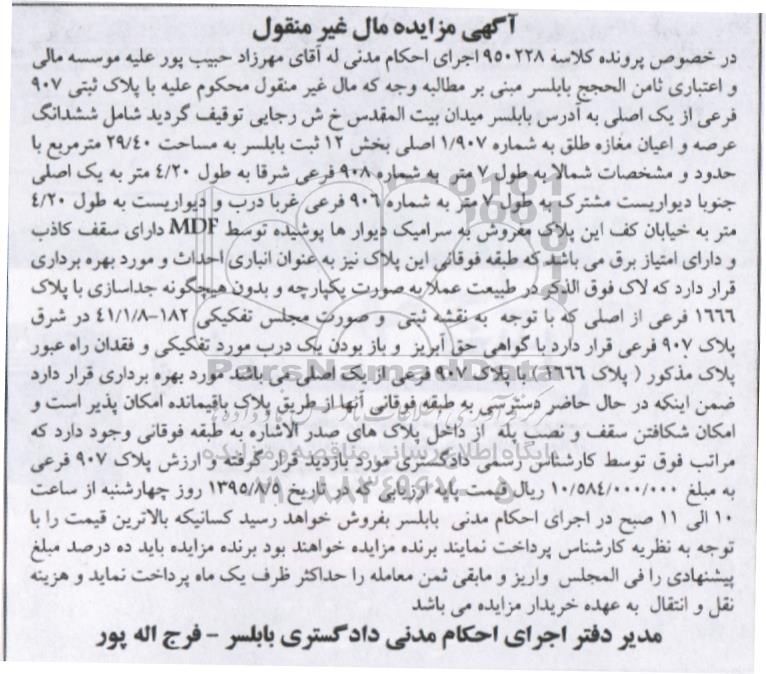 آگهی مزایده مال غیر منقول
در خصوص پرونده کلاسه ۹۵۰۲۲۸ اجرای احکام مدنی له آقای مهرزاد حبیب پور علیه موسسه مالی
و اعتباری ثامن الحجج بابلسر مبنی بر مطالبه وجه که مال غیر منقول محکوم علیه با پلاک ثبتی ۹۰۷
فرعی از یک اصلی به آدرس بابلسر میدان بیت المقدس خ ش رجایی توقیف گردید شامل ششدانگ
عرصه و اعیان مغازه طلق به شماره ۱/۹۰۷ اصلی بخش ۱۲ ثبت بابلسر به مساحت ۲۹/۴۰ مترمربع با
حدود و مشخصات شمالا به طول ۷ متر به شماره ۹۰۸ فرعی شرقا به طول ۴/۲۰ متر به یک اصلی
جنوبا دیواریست مشترک به طول ۷ متر به شماره ۹۰۶ فرعی غربا درب و دیواریست به طول ۴/۲۰
متر به خیابان کف این پلاک مفروش به سرامیک دیوار ها پوشیده توسط MDF دارای سقف کاذب
و دارای امتیاز برق می باشند که طبقه فوقانی این پلاک نیز به عنوان انباری احداث و مورد بهره برداری
قرار دارد که لاک فوق الذکر در طبیعت عملا به صورت یکپارچه و بدون هیچگونه جداسازی با پلاک
۱۶۶۶ فرعی از اصلی که با توجه به نقشه ثبتی و صورت مجلس تفکیکی ۱۸۲-۴۱/۱/۸ در شرق
پلاک ۹۰۷ فرعی قرار دارد با گواهی حق آبریز و باز بودن یک درب مورد تفکیکی و فقدان راه عبور
پلاک مذکور ( پلاک ۱۶۶۶ با پلاک ۹۰۷ فرعی از یک اصلی می باشد مورد بهره برداری قرار دارد
ضمن اینکه در حال حاضر دسترسی به طبقه فوقانی آنها از طریق پلاک باقیمانده امکان پذیر است و
امکان شکافتن سقف و نصب پله از داخل پلاک های صدر الاشاره به طبقه فوقانی وجود دارد که
مراتب فوق توسط کارشناس رسمی دادگستری مورد بازدید قرار گرفته و ارزش پلاک ۹۰۷ فرعی
به مبلغ ۱۰/۵۸۴/۰۰۰/۰۰۰ ریال قیمت پایه ارزیابی که در تاریخ ۱۳۹۵/۷/۵ روز چهارشنبه از ساعت
۱۰ الی ۱۱ صبح در اجرای احکام مدنی بابلسر بفروش خواهد رسید کسانیکه بالاترین قیمت را با
توجه به نظریه کارشناس پرداخت نمایند برنده مزایده خواهند بود برنده مزایده باید ده درصد مبلغ
پیشنهادی را فی المجلس واریز و مابقی ثمن معامله را حداکثر ظرف یک ماه پرداخت نماید و هزینه
نقل و انتقال به عهده خریدار مزایده می باشد
مدیر دفتر اجرای احکام مدنی دادگستری بابلسر - فرج اله پور
ParsNamadData
پایگاه اطلاع رسانی مناقصه و مزایده